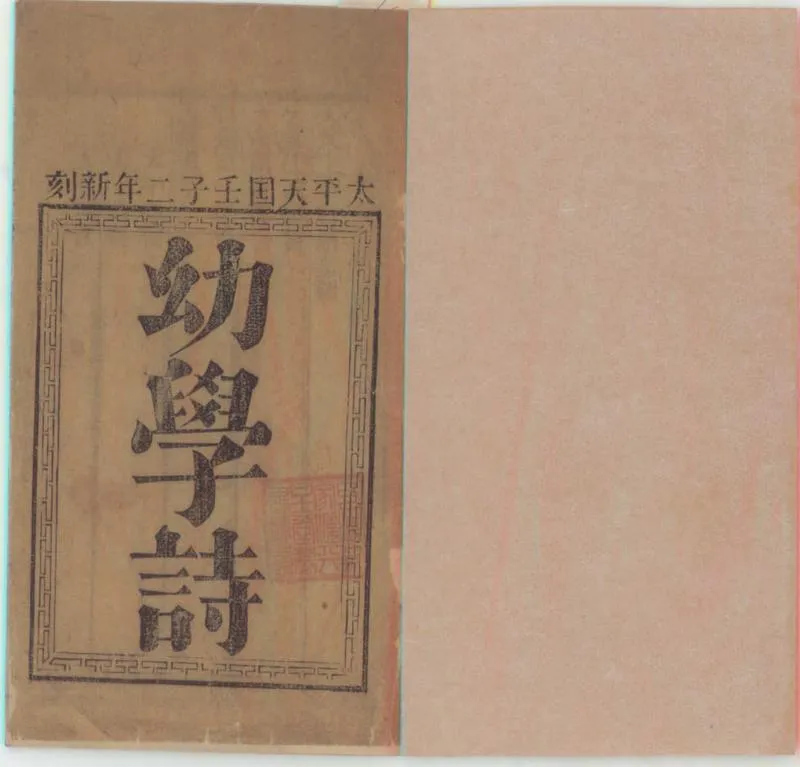 太平天囯壬子二年新刻
幼學詩